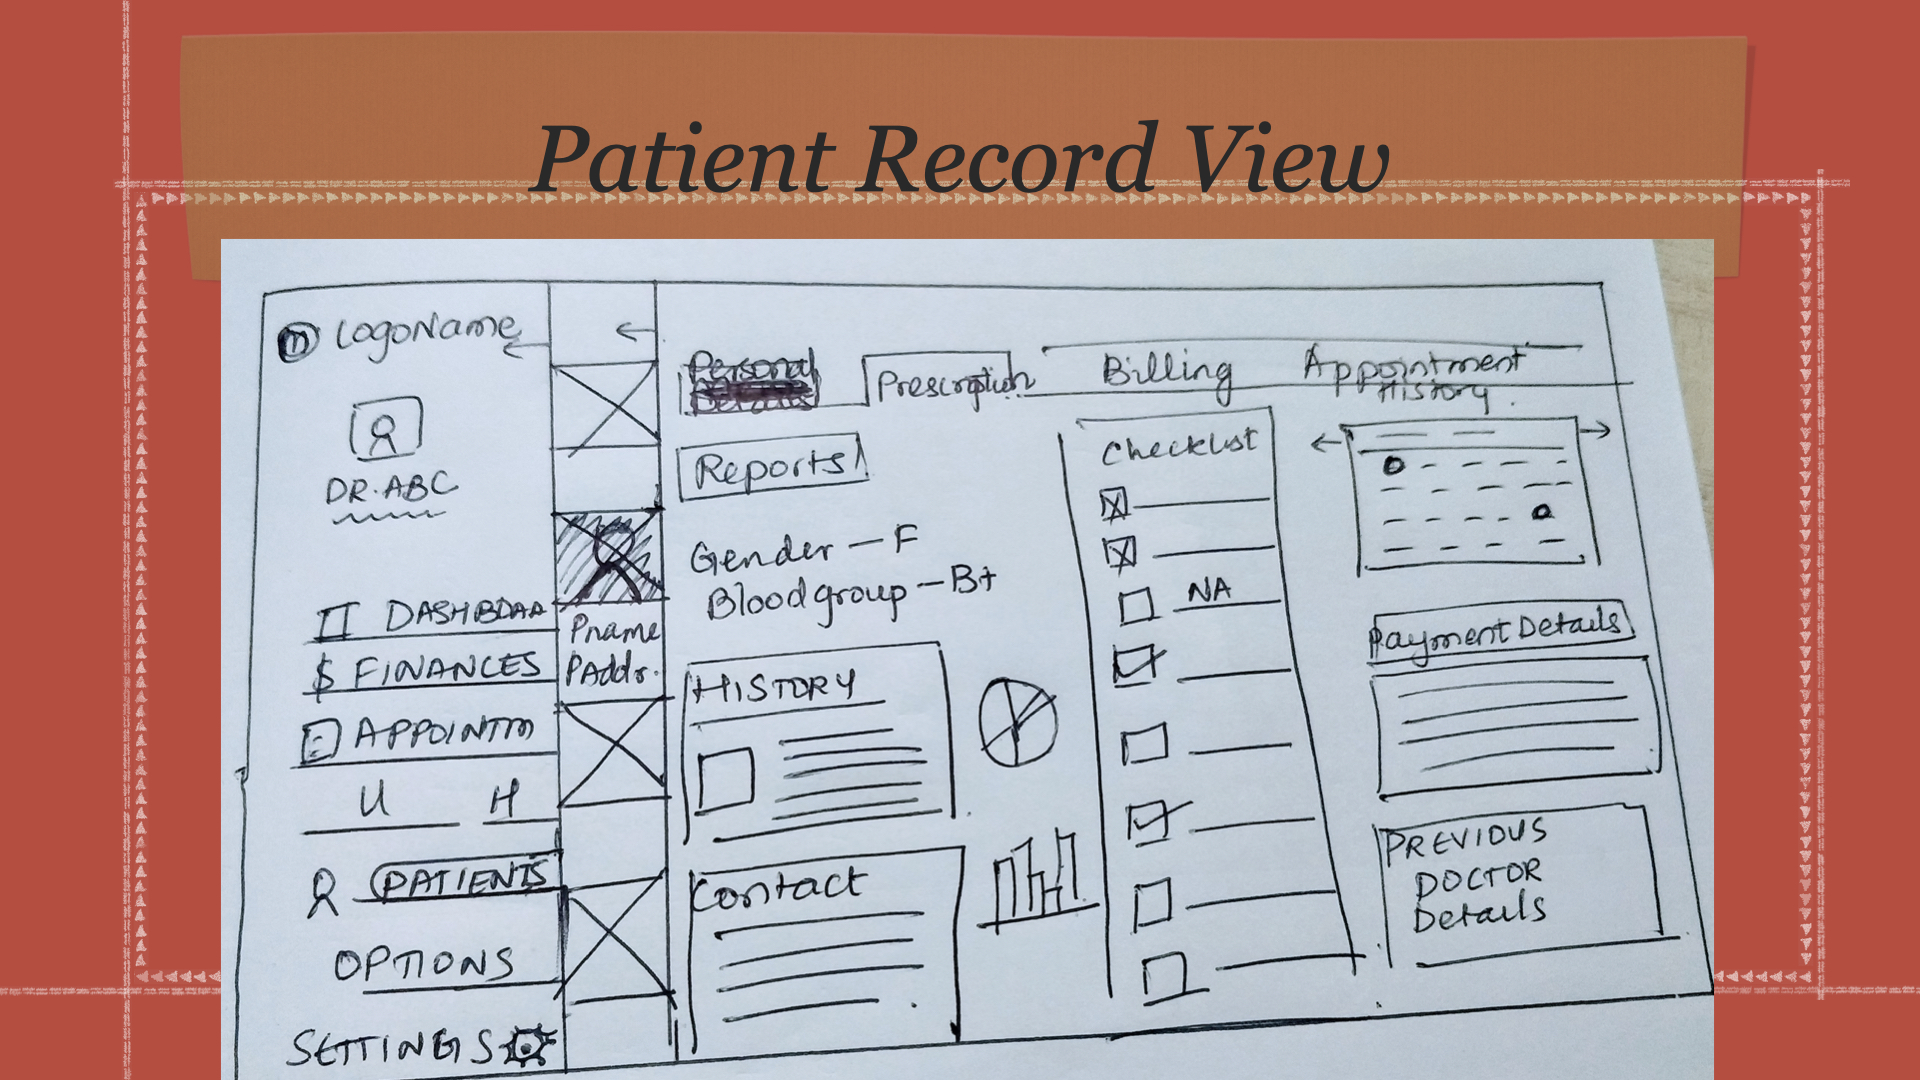 Patient Record View
m LogoName
DR. ABC
DASHBDAA
$ FINANCES
APPOINTM
U H
PATIENTS
OPTIONS
SETTINGS
Pname
PAddr.
Personal
Details
Prescription
Billing
Appointment
History
Reports
Gender - F
Blood group - B+
HISTORY
Contact
Checklist
NA
Payment Details
PREVIOUS
DOCTOR
Details